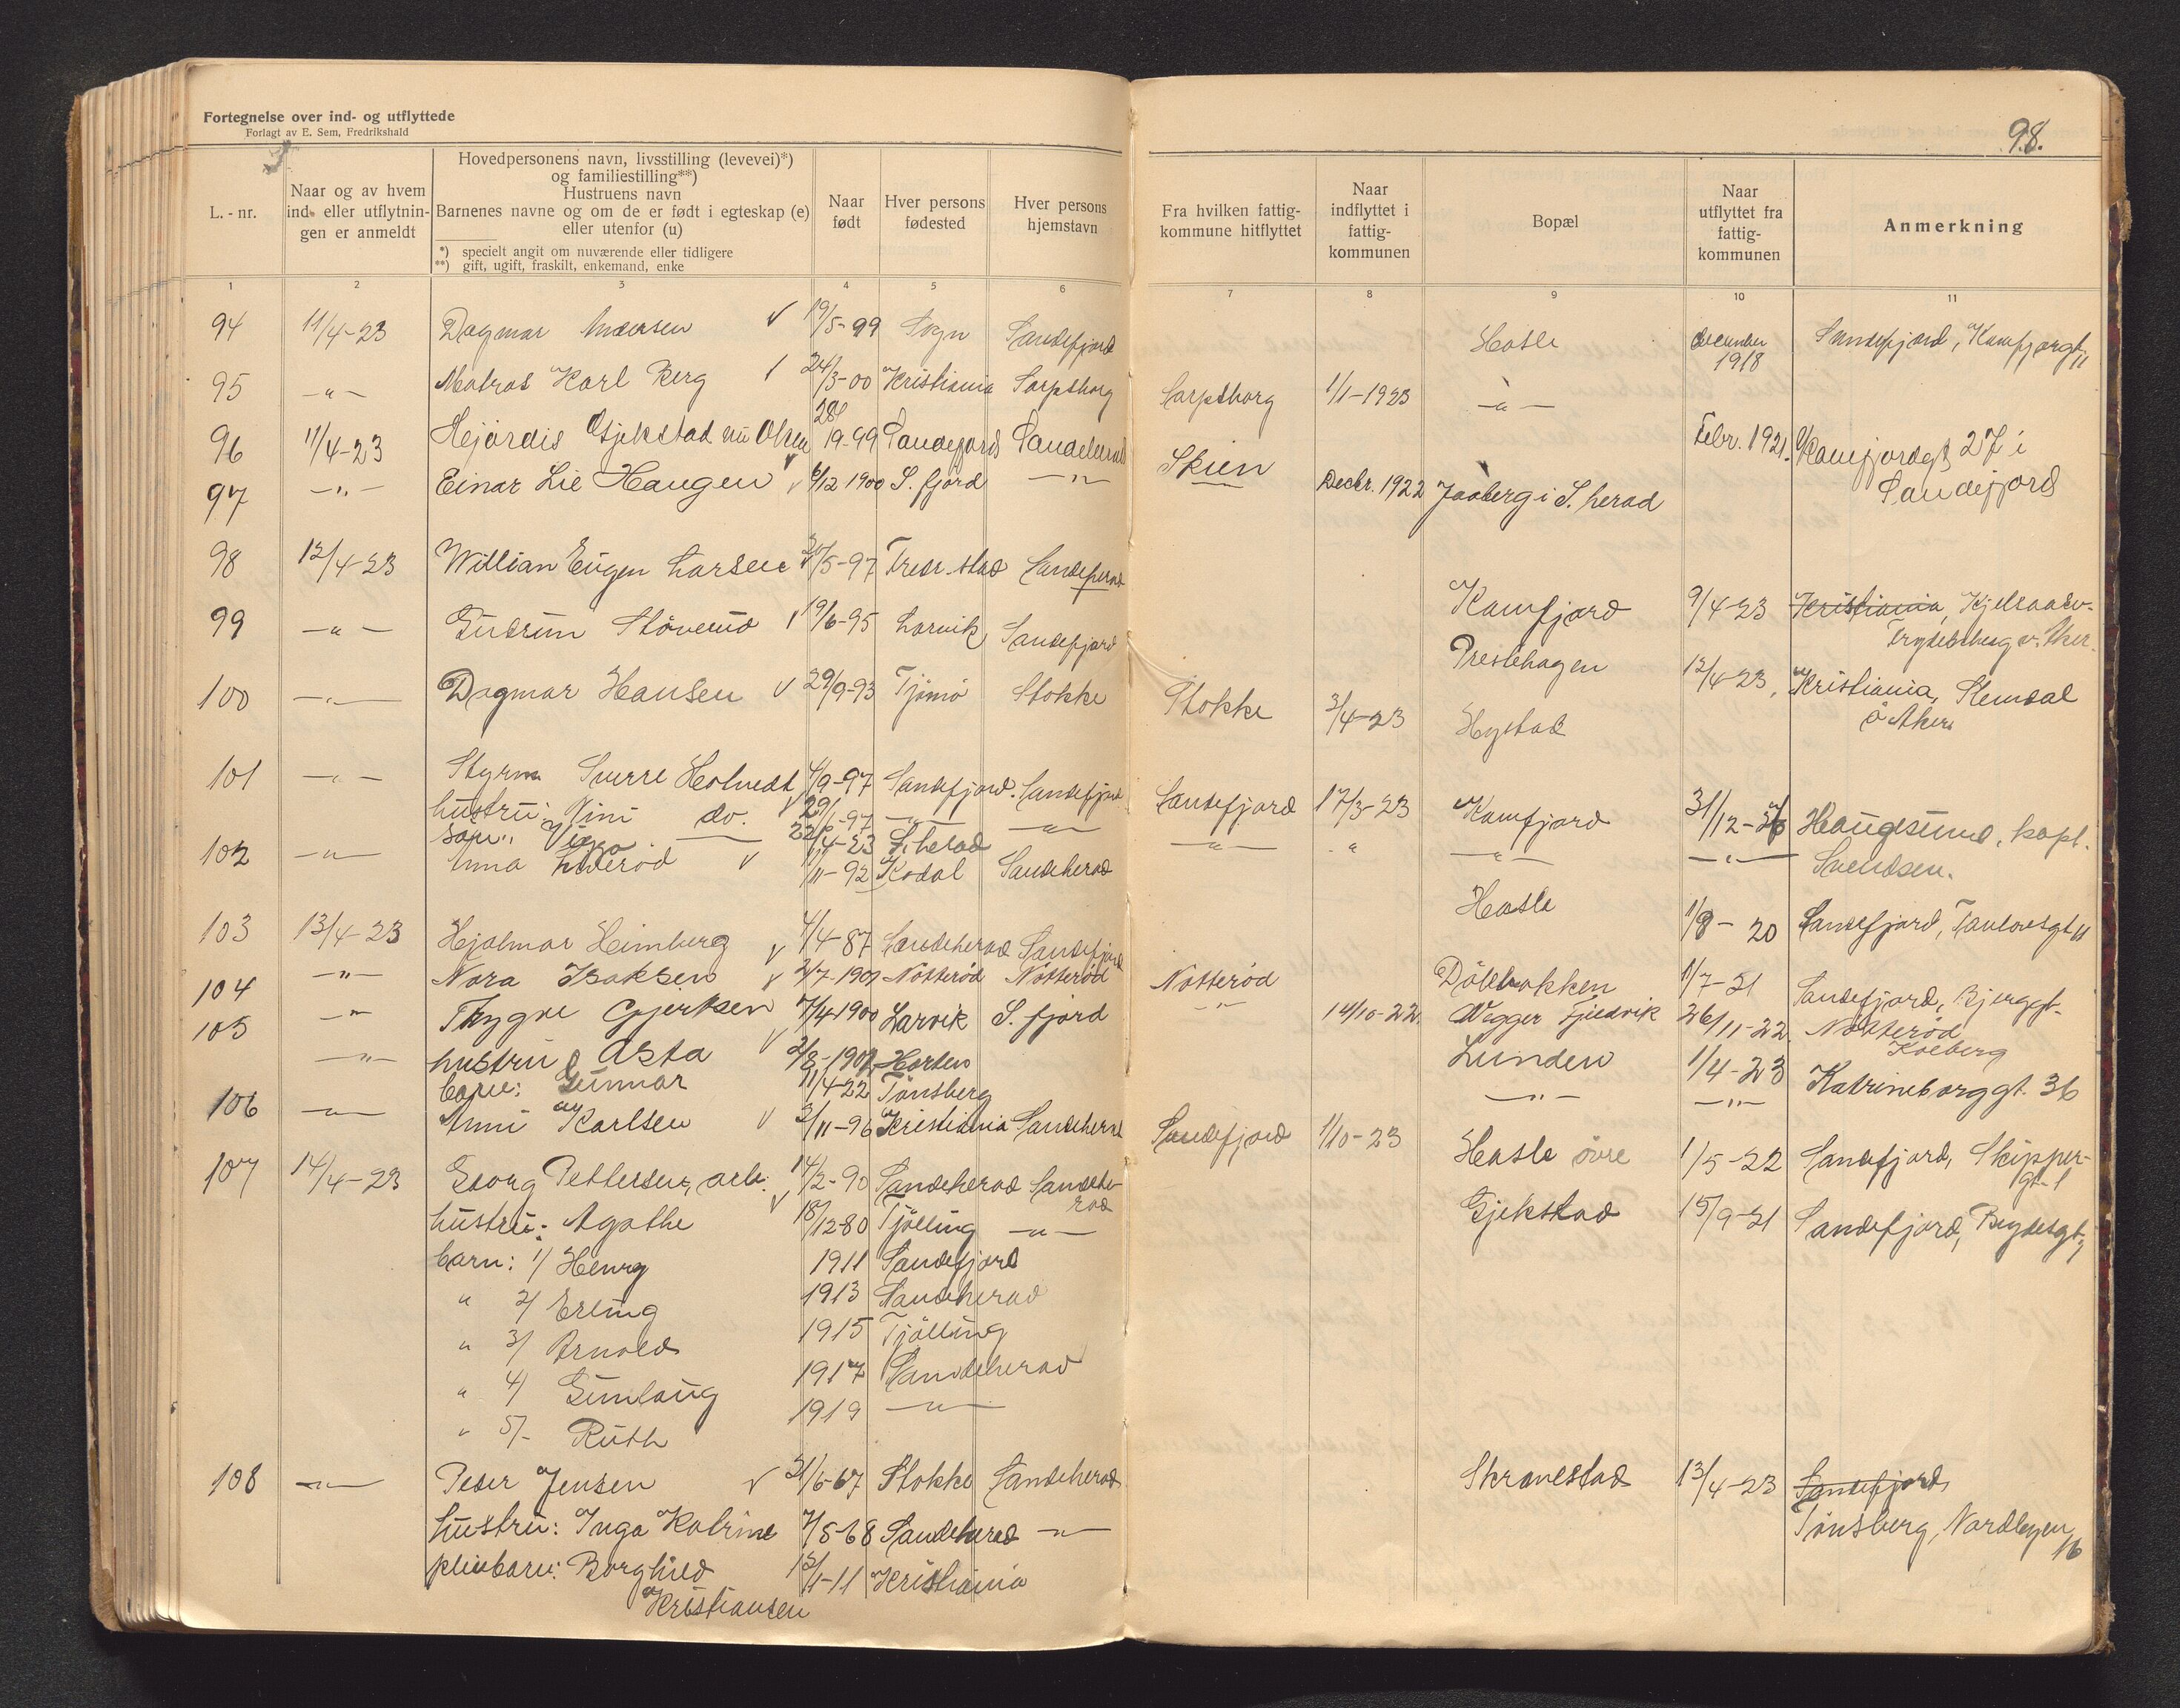 Fortegnelse over ind- og utflyttede
Forlagt av E. Sem, Fredrikshald
98.
L.-nr.
Naar og av hvem ind- eller utflytnin-gen er anmeldt
Hovedpersonens navn, livsstilling (levevei)*)
og familiestilling**)
Hustruens navn
Barnenes navne og om de er født i egteskap (e)
eller utenfor (u)
*) specielt angit om nuværende eller tidligere
**) gift, ugift, fraskilt, enkemand, enke
Naar født
Hver persons fødested
Hver persons hjemstavn
Fra hvilken fattig-kommune hitflyttet
Naar indflyttet i fattig-kommunen
Bopæl
Naar utflyttet fra fattig-kommunen
Anmerkning
1 2 3 4 5 6 7 8 9 10 11
94 11/4-23 Dagmar 19/5-99 Sogn Sandefjord Hasle december 1918 Sandefjord, Kamfjordgt. 11
95 -"- Matros Karl Berg 24/3-00 Kristiania Sarpsborg Sarpsborg 1/1-1923 -"-
96 11/4-23 Hejördis Gjekstad nu Olsen 28/9-99 Sandefjord Sandeherad Febr. 1921. Kamfjordgt 27 i
97 -"- Einar Lie Haugen 6/12 1900 S.fjord -"- Skien Decbr. 1922 Jaaberg i S. herad Sandefjord
98 12/4-23 Willian Eugen Larsen 30/5-97 Fredr.stad Sandeherad Kamfjord 9/4-23 Kristiania, Kjelsaasv.
99 -"- Gudrun Stövernd 19/6-95 Larvik Sandefjord Preslehagen 12/4-23, Kristiania, Slemdal
ö Aker.
100 -"- Dagmar Hansen 29/9-93 Tjömö Stokke Stokke 3/4-23 Hystad
101 -"- Styrm. Sverre Holvedt 4/9-97 Sandefjord. Sandefjord Sandefjord 17/3-23 Kamfjord Haugesund, kapt.
hustru: Nini do. 29/1-97 -"- -"- -"- " -"- -"- Svendsen.
søn: Viggo 22/4-23 S.herad
102 -"- Anna 1/11-92 Kodal Sandeherad Hasle 1/8-20 Sandefjord,
103 13/4-23 Hjalmar Heimberg 4/4-87 Sandeherad Sandefjord 1/7-21 Sandefjord, Bjerggt.
104 -"- Nora Isaksen Nötteröd Nötteröd Nötteröd 14/10-22. Vegger 26/11-22. Nötteröd
105 -"- Trygve Gjertsen 7/4-1900 Larvik S. fjord -"- Lunden 1/4-23 Katrineborggt. 36
-"- hustru Asta Horten -"- -"-
barn: Gunnar 11/4-22 Tönsberg
106 -"- Anni Karlsen 2/11-96 Kristiania Sandeherad Sandefjord 1/10-23 Hasle övre 1/5-22 Sandefjord, Skipper-
gt. 1
107 14/4-23 Georg Pettersen, arb. 14/2-90 Sandeherad Sandehe-
rad Gjekstad 15/9-21 Sandefjord,
hustru: Agathe 18/12-80 Tjölling -"-
barn: 1/ Henry 1911 Sandefjord
" 2/ Erling 1913 Sandeherad
" 3/ Arnold 1915 Tjölling
" 4/ Gunlaug 1917 Sandeherad
" 5/- Ruth 1919 -"-
108 -"- Peder Jensen 31/6-67 Stokke Sandeherad Skravestad 13/4-23 Sandefjord,
hustru: Inga Katrine 7/5-68 Sandeherad -"- Tönsberg, Nordbyen
16
pleiebarn: Borghild 13/1-11 Kristiania
Kristiansen